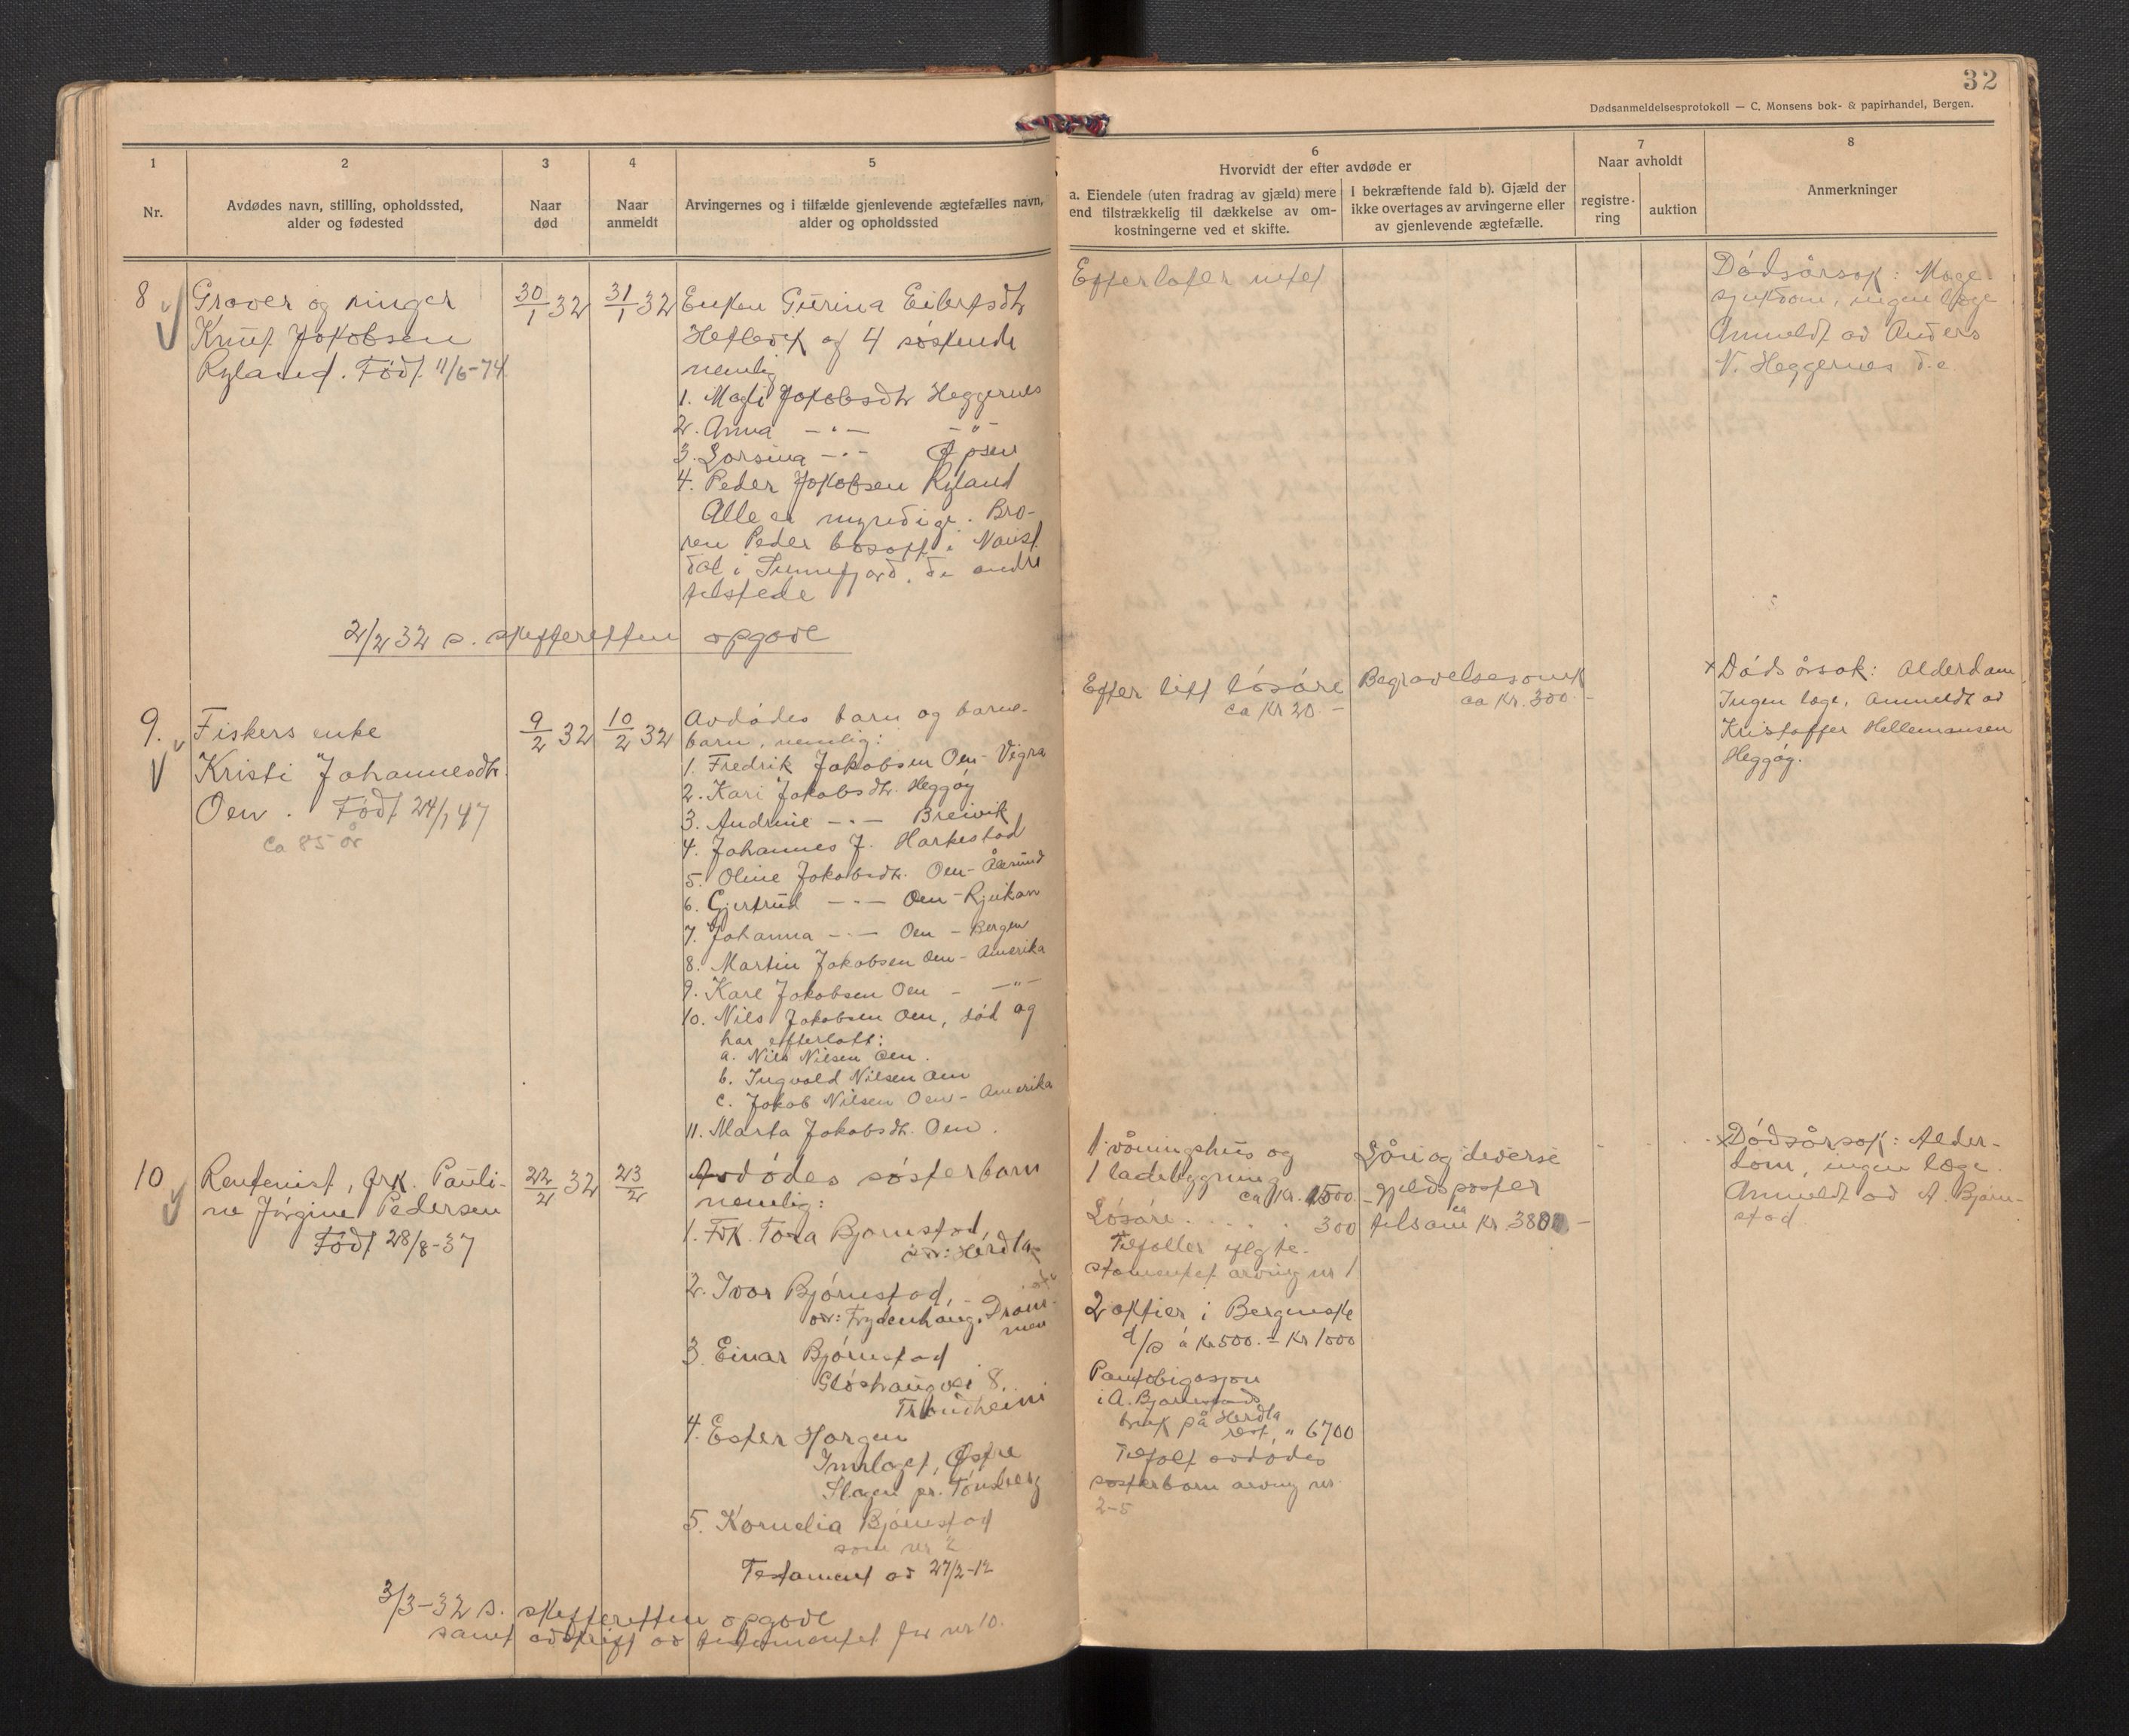 32
Dødsanmeldelsesprotokoll — C. Monsens bok- & papirhandel, Bergen.
1
Nr.
2
Avdødes navn, stilling, opholdssted,
alder og fødested
3
Naar
død
4
Naar
anmeldt
5
Arvingernes og i tilfælde gjenlevende ægtefælles navn,
alder og opholdssted
6
Hvorvidt der efter avdøde er
a. Eiendele (uten fradrag av gjæld) mere
end tilstrækkelig til dækkelse av om-
kostningerne ved et skifte.
I bekræftende fald b). Gjæld der
ikke overtages av arvingerne eller
av gjenlevende ægtefælle.
7
Naar avholdt
registre-
ring
auktion
8
Anmerkninger
8
Graver og ringer
Knut Jakobsen
Ryland. Født 11/6-74
30/1 32
31/1 32
Enken Gurina Eilertsdtr
Hetlevik og 4 søskende
nemlig
1. Magli Jakobsdtr Heggernes
2. Anna —"— —"—
3. Lorsina —"—
4. Peder Jakobsen Ryland
Alle er myndige. Bro-
ren Peder bosatt i Naust-
dal i Sunnfjord, de andre
tilstede
Efterlater intet
Dødsårsak: Mage-
sjukdom, ingen læge
Anmeldt av Anders
N. Heggernes d.e
2/2 32 s. skifteretten opgave
9.
Fiskers enke
Kristi Johannesdtr.
Oen. Født 24/1 47
ca 85 år
9/2 32
10/2 32
Avdødes barn og barne-
barn, nemlig:
1. Fredrik Jakobsen Oen - Vigra
2. Kari Jakobsdtr. Heggøy
3. Andrine —"— Breivik
4. Johannes J. Harkestad
5. Oline Jakobsdtr. Oen - Ålesund
6. Gjertrud —"— Oen - Rjukan
7. Johanna —"— Oen - Bergen
8. Martin Jakobsen Oen - Amerika
9. Karl Jakobsen Oen - —"—
10. Nils Jakobsen Oen, død og
har efterlatt:
a. Nils Nilsen Oen.
b. Ingvald Nilsen Oen
c. Jakob Nilsen Oen - Amerika
11. Marta Jakobsdtr. Oen.
Efter litt løsøre
ca Kr 20.-
Begravelsesomk
ca Kr. 300.-
x Dødsårsak: Alderdom
Ingen læge, Anmeldt av
Kristoffer Hellemansen
Heggøy.
10
Rentenist, frk. Pauli-
ne Jørgine Pedersen
Født 28/8-37
22/2 32
23/2
Avdødes søsterbarn
nemlig:
1. Frk. Tora Bjørnstad,
adr: Herdla
2. Ivar Bjørnstad,
adr: Frydenhaug, Dram-
men
3. Einar Bjørnstad
Gløshaugvei 8.
Trondheim
4. Ester Horgen
Innlaget, Østre
Slagen pr. Tønsberg
5. Kornelia Bjørnstad
som nr 2
Testament av 27/2-12
1 våningshus og
1 ladebygning
ca Kr. 1500.-
Løsøre . . . . . 300
Tilfaller iflg te-
stamentet arving nr 1
2 aktier i Bergenske
d/s á Kr 500.- = Kr 1000
Pantobligasjon
i A. Bjørnstads
bruk på Herdla
rest, " 6700
Tilfalt avdødes
søsterbarn arving nr
2-5
Lån og diverse
gjeldsposter
tilsam
x Dødsårsak: Alder-
dom, ingen læge.
Anmeldt av A. Bjørn-
stad
3/3-32 s. skifteretten opgave
samt avskrift av testamentet for nr 10.